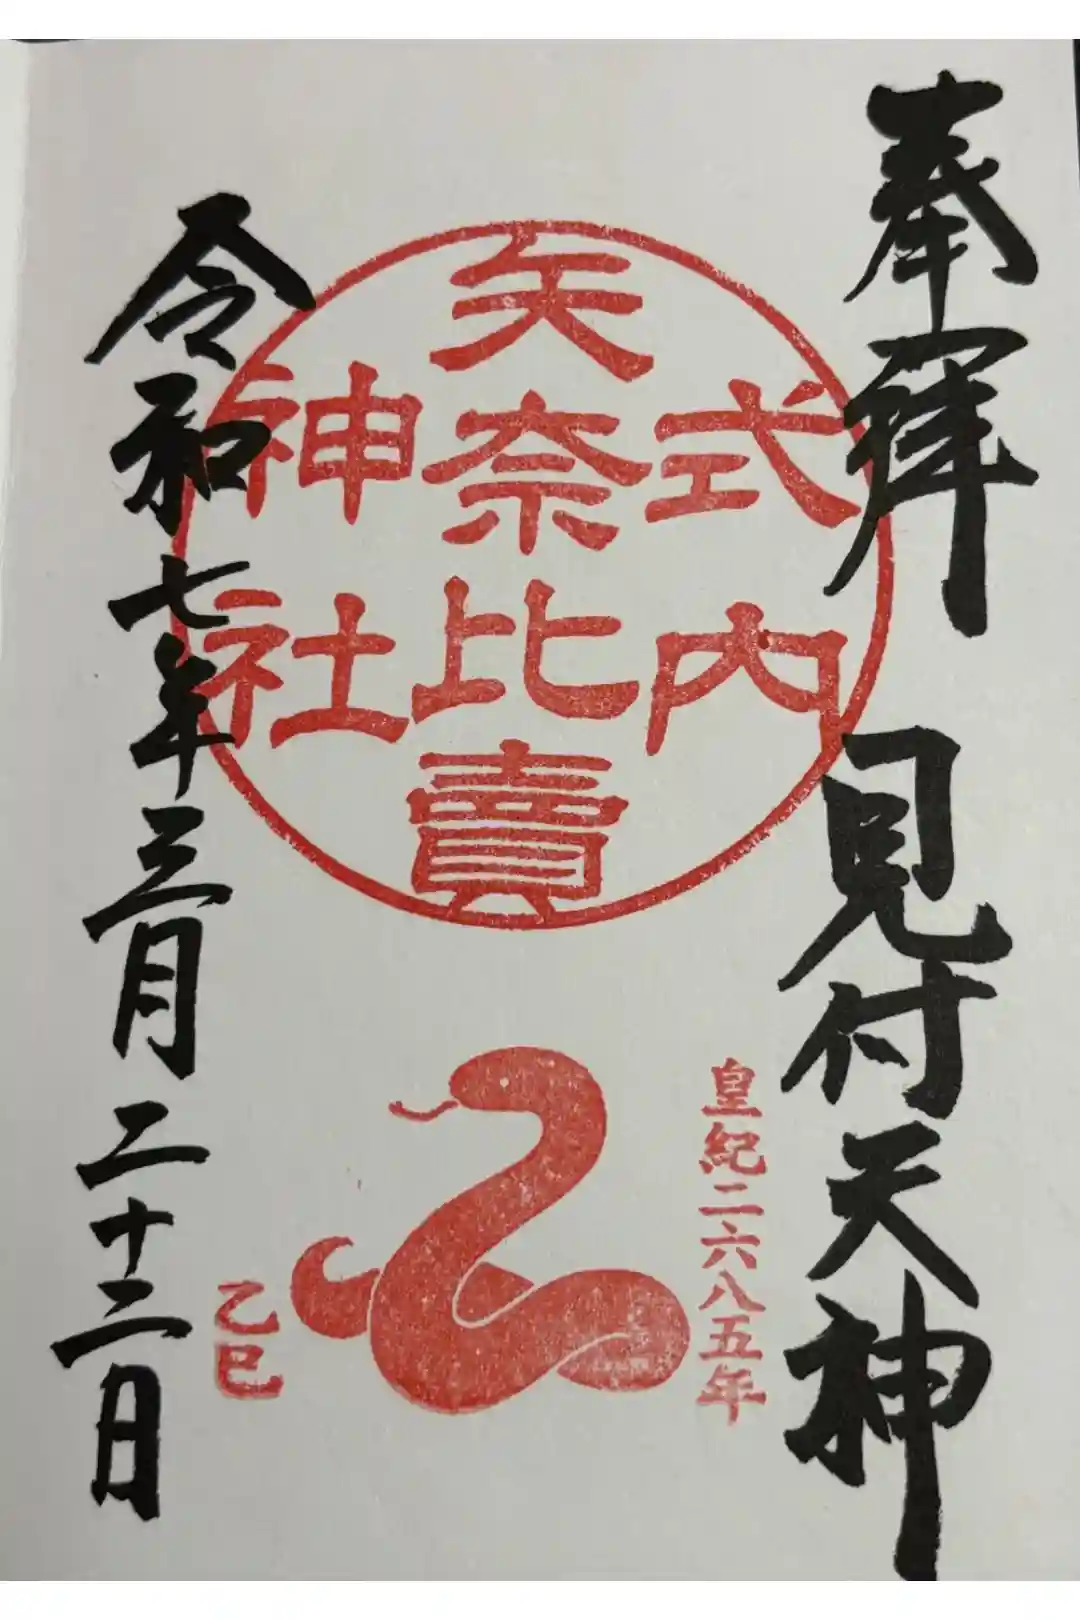 奉拝　見付天神
皇紀二六八五年
式内
矢奈比賣
神社
乙巳
令和七年三月二十二日